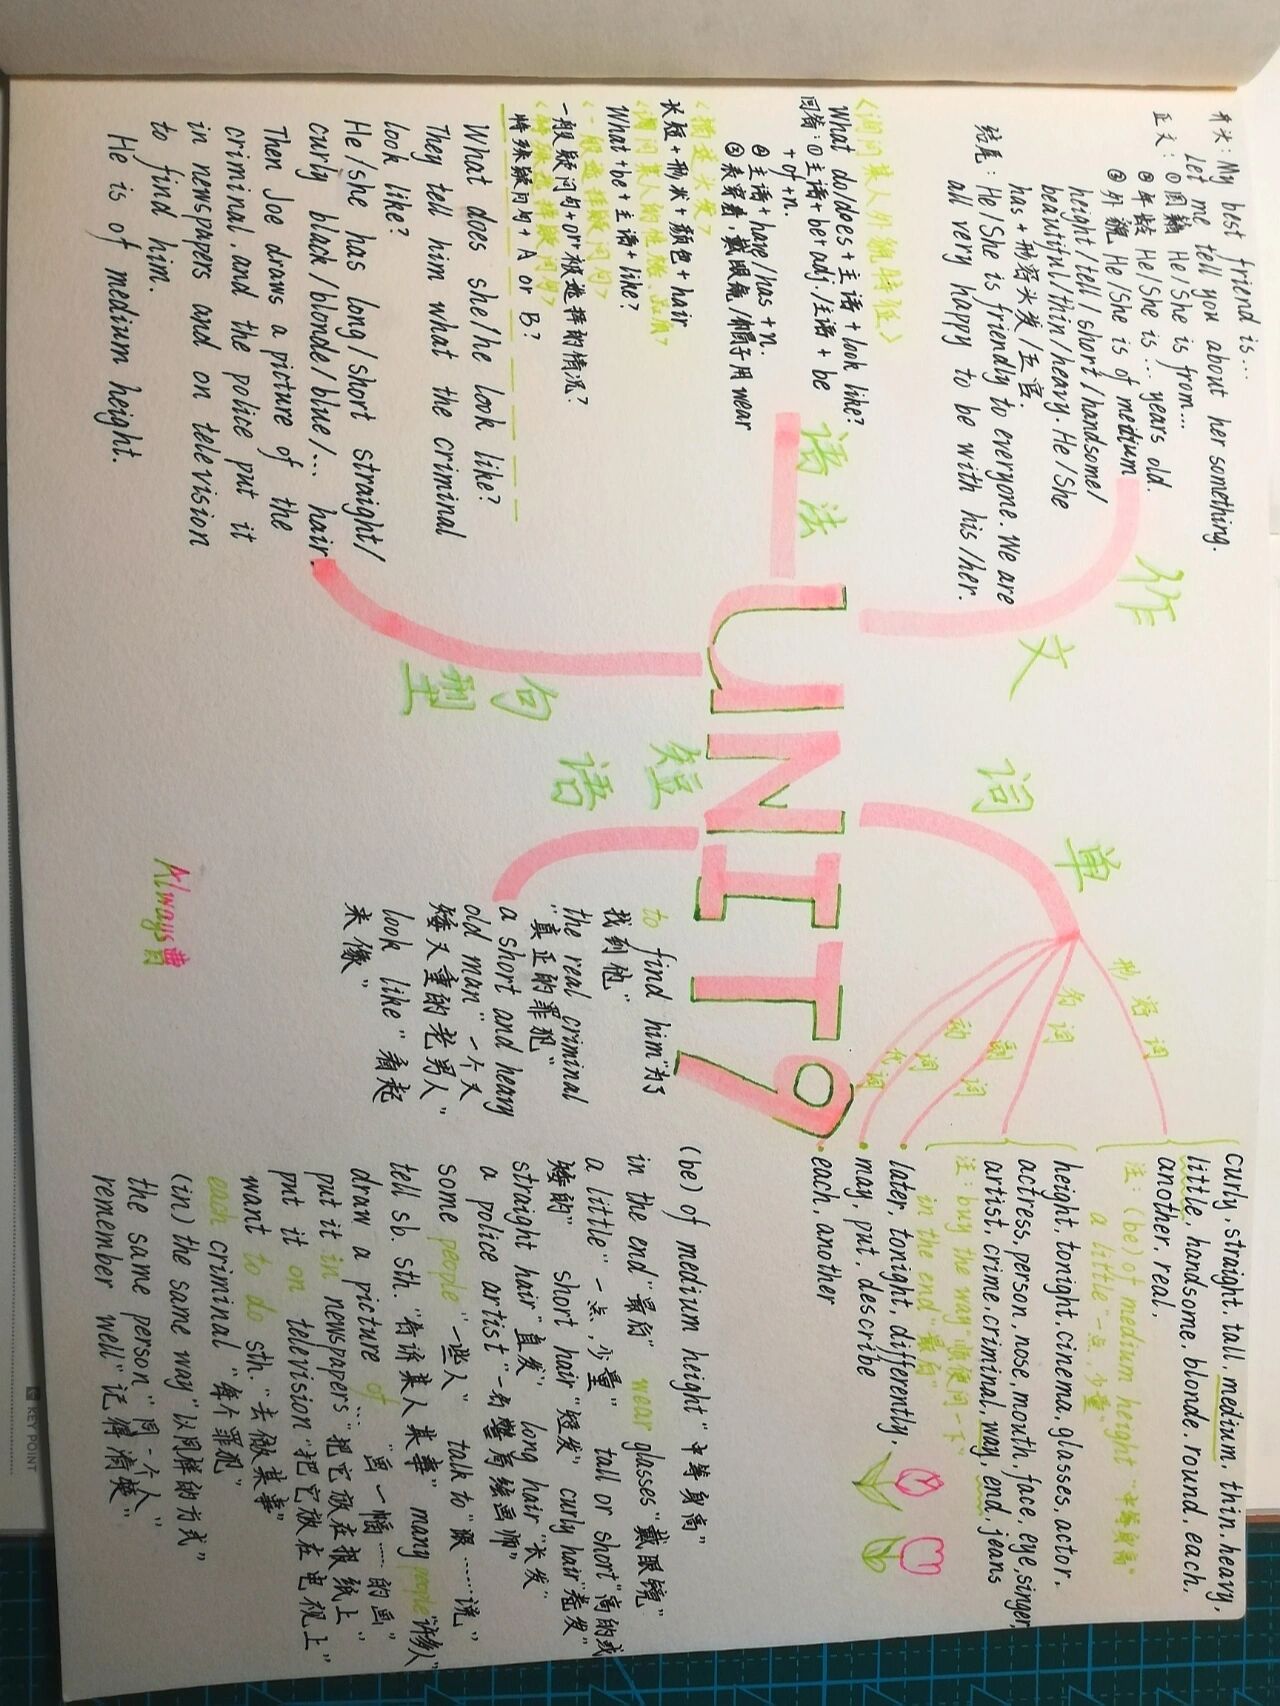 UNIT 9
作文
开头：My best friend is...
Let me tell you about her something.
正文：①国籍 He/She is from...
②年龄 He/She is ... years old.
③外貌 He/She is of medium
height/tell/short/handsome/
beautiful/thin/heavy. He/She
has+形容头发/五官.
结尾：He/She is friendly to everyone. We are
all very happy to be with his/her.
语法
<询问某人外貌特征>
What do/does+主语+look like?
回答：①主语+be+adj/主语+be
+of+n.
②主语+have/has+n.
③表穿着，戴眼镜/帽子用wear
<描述头发>
长短+形状+颜色+hair
<询问某人的性格、品质>
What+be+主语+like?
<一般选择疑问句>
一般疑问句+or+被选择的情况?
<特殊选择疑问句>
特殊疑问句+A or B?
句型
What does she/he look like?
They tell him what the criminal
look like?
He/she has long/short straight/
curly black/blonde/blue/... hair
Then Joe draws a picture of the
criminal, and the police put it
in newspapers and on television
to find him.
He is of medium height.
单词
形容词
curly, straight, tall, medium, thin, heavy,
little, handsome, blonde, round, each,
another, real.
注：(be) of medium height "中等身高"
a little "一点,少量"
名词
height, tonight, cinema, glasses, actor,
actress, person, nose, mouth, face, eye, singer,
artist, crime, criminal, way, end, jeans
注：buy the way "顺便问一下"
in the end "最后"
副词
later, tonight, differently,
动词
may, put, describe
代词
each, another
短语
to find him "为了
找到他"
the real criminal
"真正的罪犯"
a short and heavy
old man "一个又
矮又重的老男人"
look like "看起
来像"
(be) of medium height "中等身高"
in the end "最后" wear glasses "戴眼镜"
a little "一点,少量" tall or short "高的或
矮的" short hair "短发" curly hair "卷发"
straight hair "直发" long hair "长发"
a police artist "一名警局绘画师"
some people "一些人" talk to "跟……说"
tell sb. sth. "告诉某人某事" many people "许多人"
draw a picture of ... "画一幅……的画"
put it in newspapers "把它放在报纸上"
put it on television "把它放在电视上"
want to do sth. "去做某事"
each criminal "每个罪犯"
(in) the same way "以同样的方式"
the same person "同一个人"
remember well "记得清楚"
KEY POINT